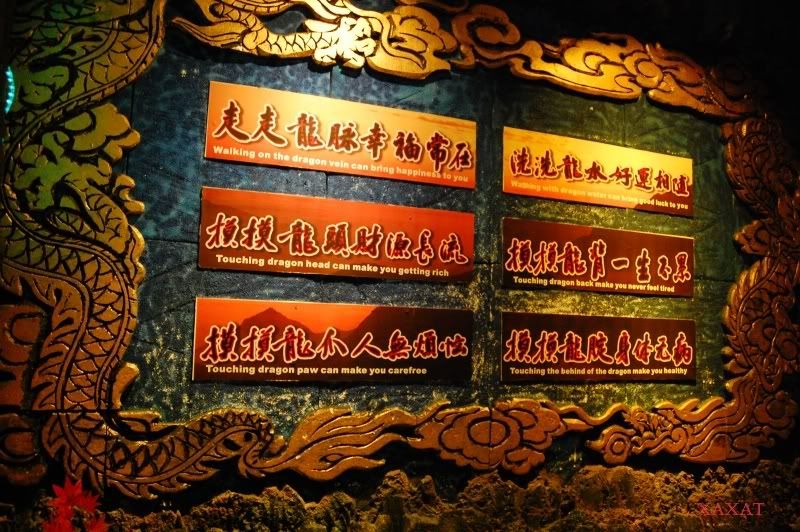 走走龍脈幸福常在
Walking on the dragon vein can bring happiness to you
摸摸龍頭財源長流
Touching dragon head can make you getting rich
摸摸龍爪人無煩惱
Touching dragon paw can make you carefree
洗洗龍水好運相隨
Washing with dragon water can bring good luck to you
摸摸龍背一生不累
Touching dragon back make you never feel tired
摸摸龍腚身体无病
Touching the behind of the dragon make you healthy
XAXAT